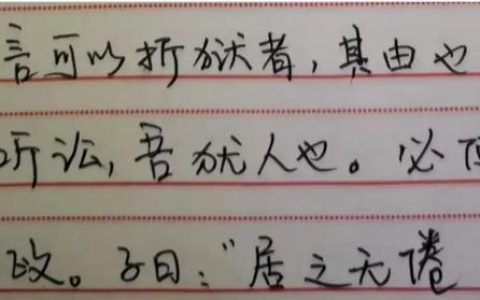 言可以折狱者，其由也
听讼，吾犹人也。必
政。子曰：“居之无倦